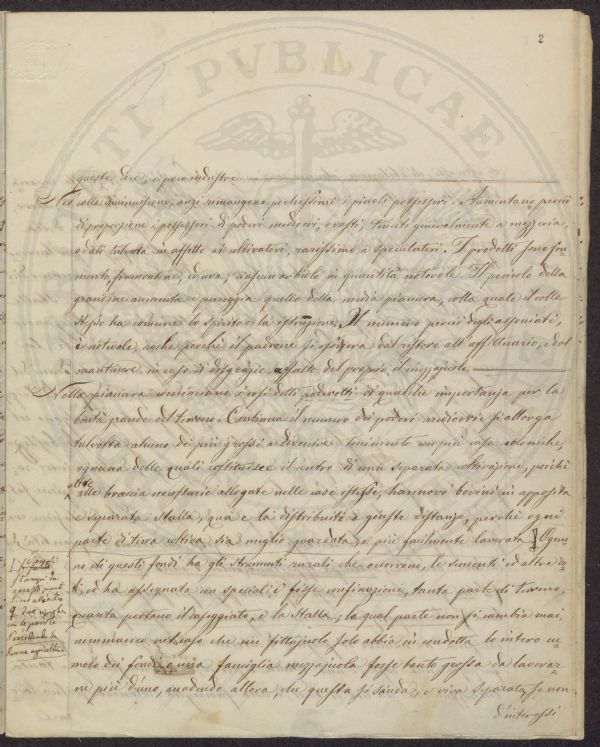 2
TI PVBLICAE
queste Dice, e poco industre.
Nel colle diminuiscono, anzi rimangono pochissimi i piccoli possessori. Aumentano perciò
di proporzione i possessori di poderi mediocri, e vasti, tenuti generalmente a mezzeria,
o dati talvolta in affitto ai coltivatori, rarissimo a speculatori. I prodotti sono fru-
mento, frumentone, ed uva; in quantità notevole. Il pericolo della
grandine aumenta e pareggia quello della media pianura, colla quale il colle
stesso ha comune lo spirito e la istruzione. Il numero perciò degli associati,
è notevole, anche perchè il padrone si esonera dal ristoro all' affittuario, e dal
mantenere in caso di disgrazie affatto del proprio il mezzajuolo.
Nella pianura cominciano i così detti poderetti di qualche importanza per la
bontà grande del terreno. Continua il numero dei poderi mediocri e si allarga
talvolta alcuno dei più grossi a divenire tenimento con più case coloniche,
ognuna delle quali costituisce il centro di una separata coltivazione, poichè
oltre
alle braccia necessarie allogate nelle case istesse, hannovi bovini in apposita
e separata stalla, quà e là distribuite a giuste distanze, perchè ogni
parte di terra coltiva sia meglio guardata, e più facilmente lavorata. Ognu-
no di questi fondi ha gli strumenti rurali che occorrono, le sementi ed altre do-
ti, ed ha assegnata con speciali e fisse confinazione, tanta parte di terreno,
quanta portano il caseggiato, e la stalla; la qual parte non si cambia mai
nemmeno nel caso che un fittajuolo solo abbia in condotta lo intero cu-
molo dei fondi o una famiglia mezzajuola fosse tanto grossa da lavorar-
ne più d'uno, usandosi allora, che questa si scinda, e viva separata, se non
d'interessi